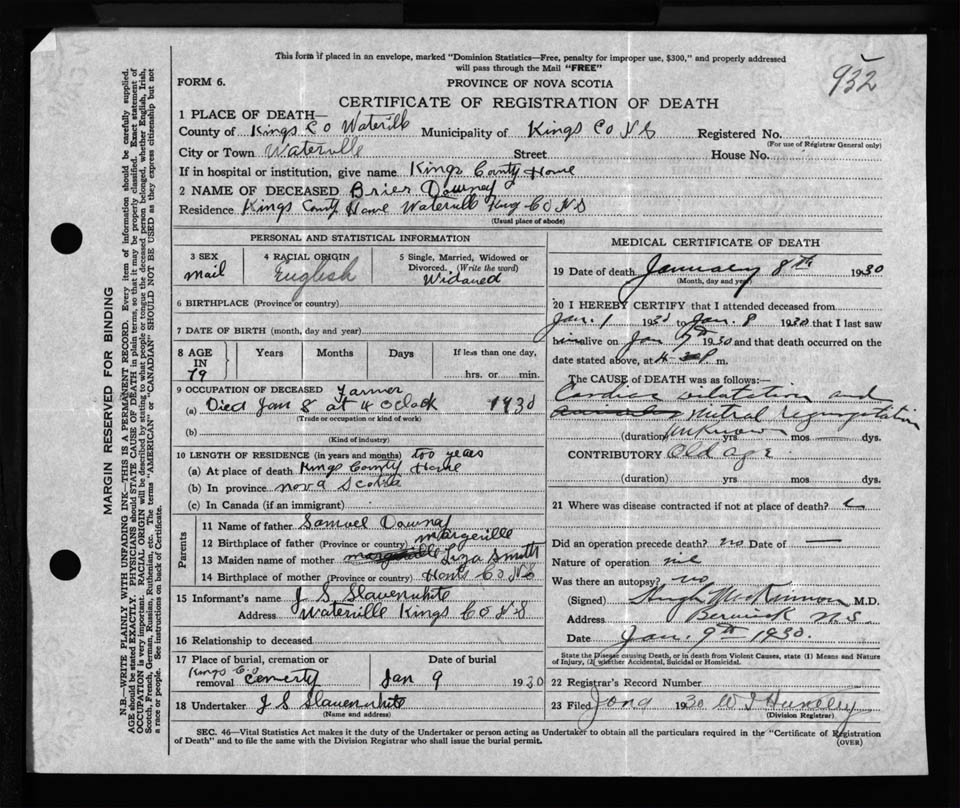 This form if placed in an envelope, marked "Dominion Statistics—Free, penalty for improper use, $300," and properly addressed
will pass through the Mail "FREE"
932
FORM 6.
PROVINCE OF NOVA SCOTIA
CERTIFICATE OF REGISTRATION OF DEATH
1 PLACE OF DEATH—
County of Kings Co Watervill Municipality of Kings Co N S Registered No.
(For use of Registrar General only)
City or Town Waterville Street House No.
If in hospital or institution, give name Kings County Home
2 NAME OF DECEASED Brier Downey
Residence Kings County Home Watervill King Co N S
(Usual place of abode)
PERSONAL AND STATISTICAL INFORMATION
3 SEX
mail
4 RACIAL ORIGIN
English
5 Single, Married, Widowed or
Divorced. (Write the word)
Widowed
6 BIRTHPLACE (Province or country)
7 DATE OF BIRTH (month, day and year)
8 AGE
IN
79
Years Months Days If less than one day,
hrs. or min.
9 OCCUPATION OF DECEASED Farmer
(a) Died Jan 8 at 4 oclock 1930
(Trade or occupation or kind of work)
(b)
(Kind of industry)
10 LENGTH OF RESIDENCE (in years and months) too years
(a) At place of death Kings County Home
(b) In province nova Scotia
(c) In Canada (if an immigrant)
Parents
11 Name of father Samuel Downey
12 Birthplace of father (Province or country) margerille
13 Maiden name of mother Liza Smith
14 Birthplace of mother (Province or country) Hants Co N S
15 Informant's name J S Slauenwhite
Address Waterville Kings Co N S
16 Relationship to deceased
17 Place of burial, cremation or
removal Kings Co Cemerty
Date of burial
Jan 9 1930
18 Undertaker J S Slauenwhite
(Name and address)
MEDICAL CERTIFICATE OF DEATH
19 Date of death January 8th 1930
(Month, day and year)
20 I HEREBY CERTIFY that I attended deceased from
Jan. 1 1930 to Jan. 8 1930 that I last saw
him alive on Jan 7th 1930 and that death occurred on the
date stated above, at 4 P m.
The CAUSE of DEATH was as follows:—
Cardiac dilatation and
mitral regurgitation
(duration) unknown yrs. mos. dys.
CONTRIBUTORY Old age
(duration) yrs. mos. dys.
21 Where was disease contracted if not at place of death?
Did an operation precede death? no Date of —
Nature of operation nil
Was there an autopsy? no
(Signed) Hugh McKinnon M.D.
Address Berwick N.S.
Date Jan. 9th 1930.
State the Disease causing Death, or in death from Violent Causes, state (1) Means and Nature
of Injury, (2) whether Accidental, Suicidal or Homicidal.
22 Registrar's Record Number
23 Filed 1930
(Division Registrar)
SEC. 46—Vital Statistics Act makes it the duty of the Undertaker or person acting as Undertaker to obtain all the particulars required in the "Certificate of Registration
of Death" and to file the same with the Division Registrar who shall issue the burial permit.
(OVER)
MARGIN RESERVED FOR BINDING
N.B.—WRITE PLAINLY WITH UNFADING INK—THIS IS A PERMANENT RECORD. Every item of information should be carefully supplied.
AGE should be stated EXACTLY. PHYSICIANS should STATE CAUSE OF DEATH in plain terms, so that it may be properly classified. Exact statement of
OCCUPATION is very important. RACIAL ORIGIN will be described by stating to what people or tongue the deceased person belonged, whether English, Irish,
Scotch, French, German, Russian, Ruthenian, etc. The terms "AMERICAN" or "CANADIAN" SHOULD NOT BE USED as they express citizenship but not
a race or people. See instructions on back of Certificate.